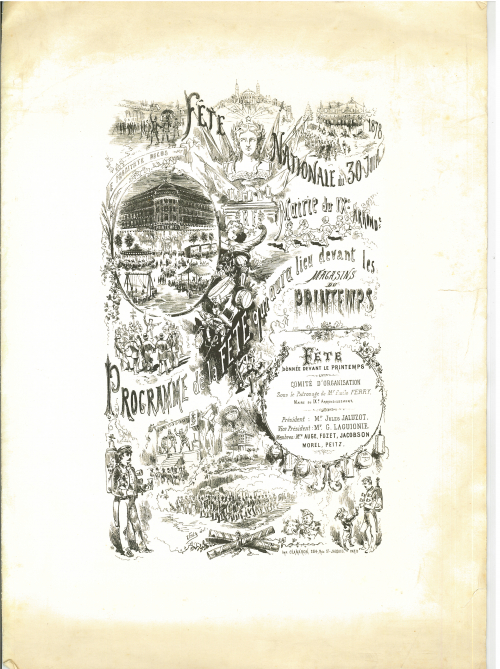 FÊTE
NATIONALE du 30 Juin
1878
Mairie du IXe ARRONDt
PROGRAMME DE LA FÊTE qui aura lieu devant les
MAGASINS
DU
PRINTEMPS
FÊTE
DONNÉE DEVANT LE PRINTEMPS
COMITÉ D'ORGANISATION
Sous le Patronage de Mr Emile FERRY,
MAIRE DU IXe ARRONDISSEMENT
Président : Mr JULES JALUZOT,
Vice Président : Mr G. LAGUIONIE,
Membres : Mrs AUGÉ, POZET, JACOBSON
MOREL, PEITZ.